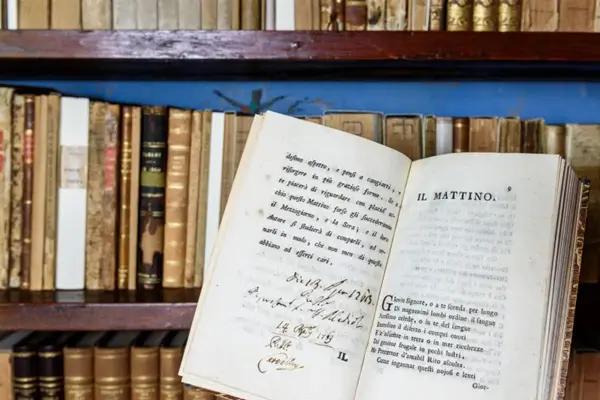 desimo aspetto, e pensi a cangiarti, e
risorgere in più graziose forme. Se a
te piacerà di riguardare con placid' oc-
chio questo Mattino forse gli succederanno
il Mezzogiorno, e la Sera; e il loro
Autore si studierà di comporli, ed or-
narli in modo, che non men di questo
abbiano ad esserti cari.
1763
IL
9
IL MATTINO.
Giovin Signore, o a te scenda per lungo
Di magnanimi lombi ordine il sangue
Purissimo celeste, o in te del sangue
Emendino il difetto i compri onori
E le adunate in terra o in mar ricchezze
Dal genitor frugale in pochi lustri,
Me Precettor d'amabil Rito ascolta.
Come ingannar questi nojosi e lenti
Gior-